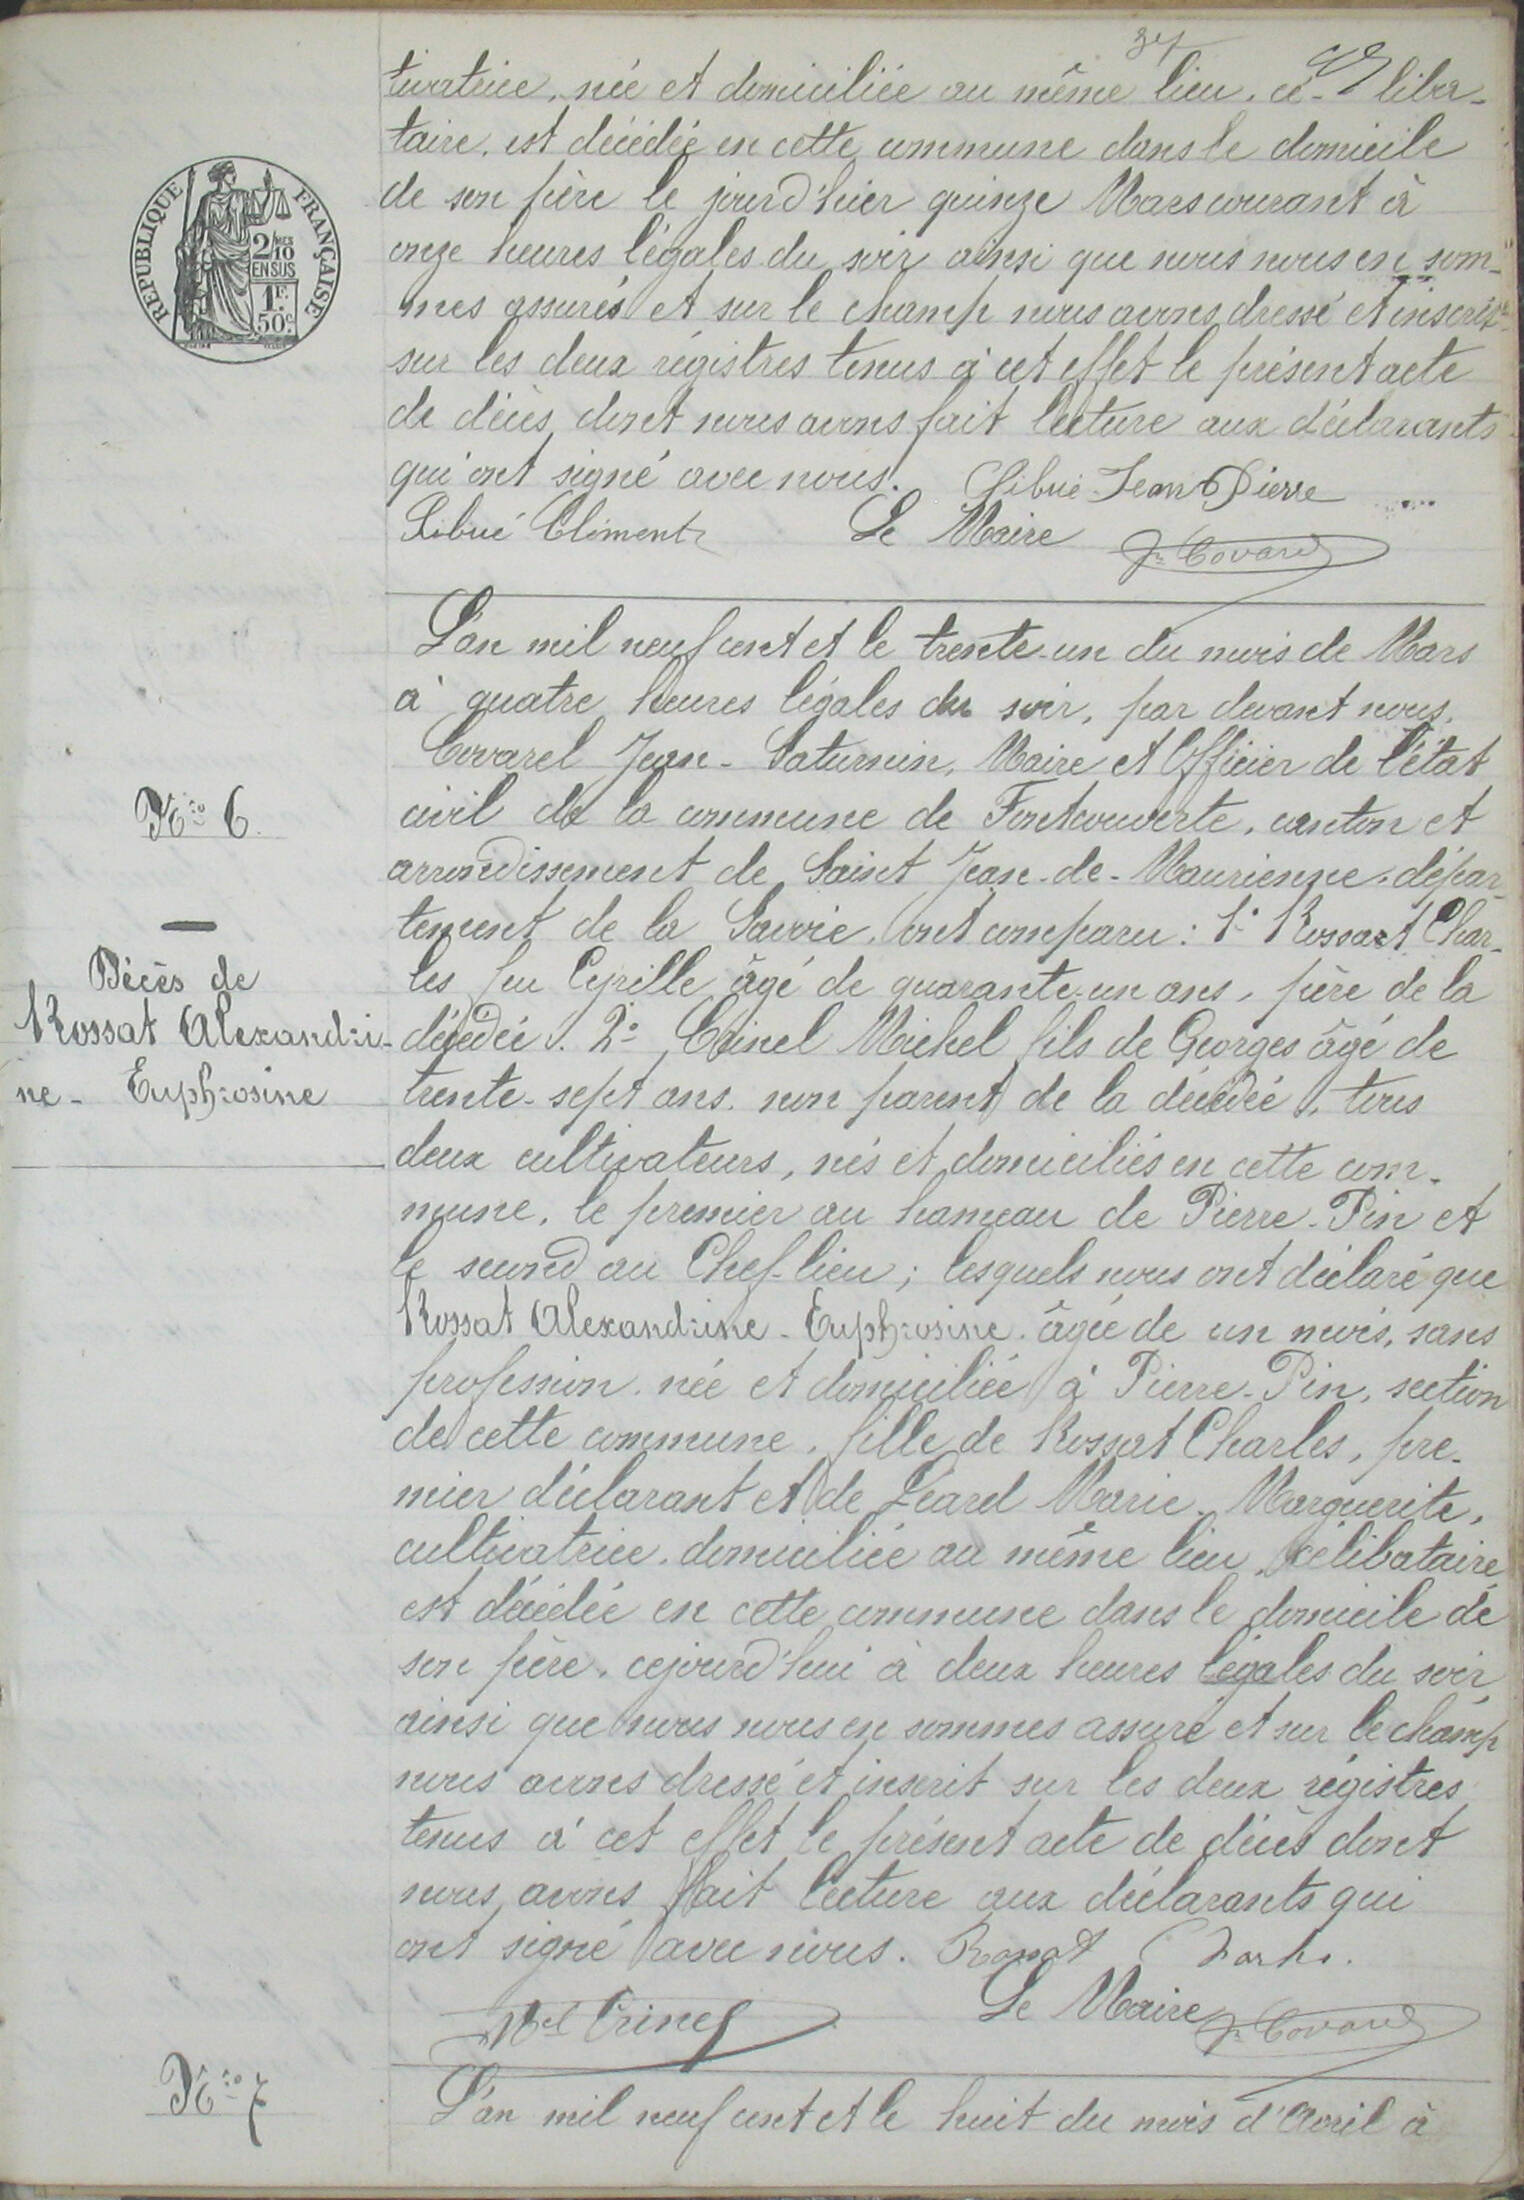 37
tivatrice, née et domiciliée au même lieu, céliba-
taire, est décédée en cette commune dans le domicile
de son père le jourd'hier quinze Mars courant à
onze heures légales du soir ainsi que nous nous en som-
mes assurés et sur le champ nous avons dressé et inscrit
sur les deux régistres tenus à cet effet le présent acte
de décès dont nous avons fait lecture aux déclarants
qui ont signé avec nous. Jean Pierre
Clément Le Maire Jn Covarel
REPUBLIQUE FRANÇAISE
2/10MES
EN SUS
1F.
50c.
L'an mil neuf cent et le trente-un du mois de Mars
à quatre heures légales du soir, par devant nous,
Covarel Jean-Saturnin, Maire et Officier de l'état
civil de la commune de Fontcouverte, canton et
arrondissement de Saint Jean-de-Maurienne, dépar-
tement de la Savoie, ont comparu: 1° Rossat Char-
les feu Cyrille âgé de quarante-un ans, père de la
décédée. 2° Crinel Michel fils de Georges âgé de
trente-sept ans, non parent de la décédée, tous
deux cultivateurs, nés et domiciliés en cette com-
mune, le premier au hameau de Pierre-Pin et
le second au Chef-lieu; lesquels nous ont déclaré que
Rossat Alexandrine-Euphrosine, âgée de un mois, sans
profession, née et domiciliée à Pierre-Pin, section
de cette commune, fille de Rossat Charles, pre-
mier déclarant et de Léard Marie-Marguerite,
cultivatrice, domiciliée au même lieu, célibataire,
est décédée en cette commune dans le domicile de
son père, cejourd'hui à deux heures légales du soir,
ainsi que nous nous en sommes assuré et sur le champ
nous avons dressé et inscrit sur les deux régistres
tenus à cet effet le présent acte de décès dont
nous avons fait lecture aux déclarants qui
ont signé avec nous. Rossat Charles.
Mel Crinel Le Maire Jn Covarel
Nro 6.
Décès de
Rossat Alexandri-
ne-Euphrosine
Nro 7
L'an mil neuf cent et le huit du mois d'Avril à